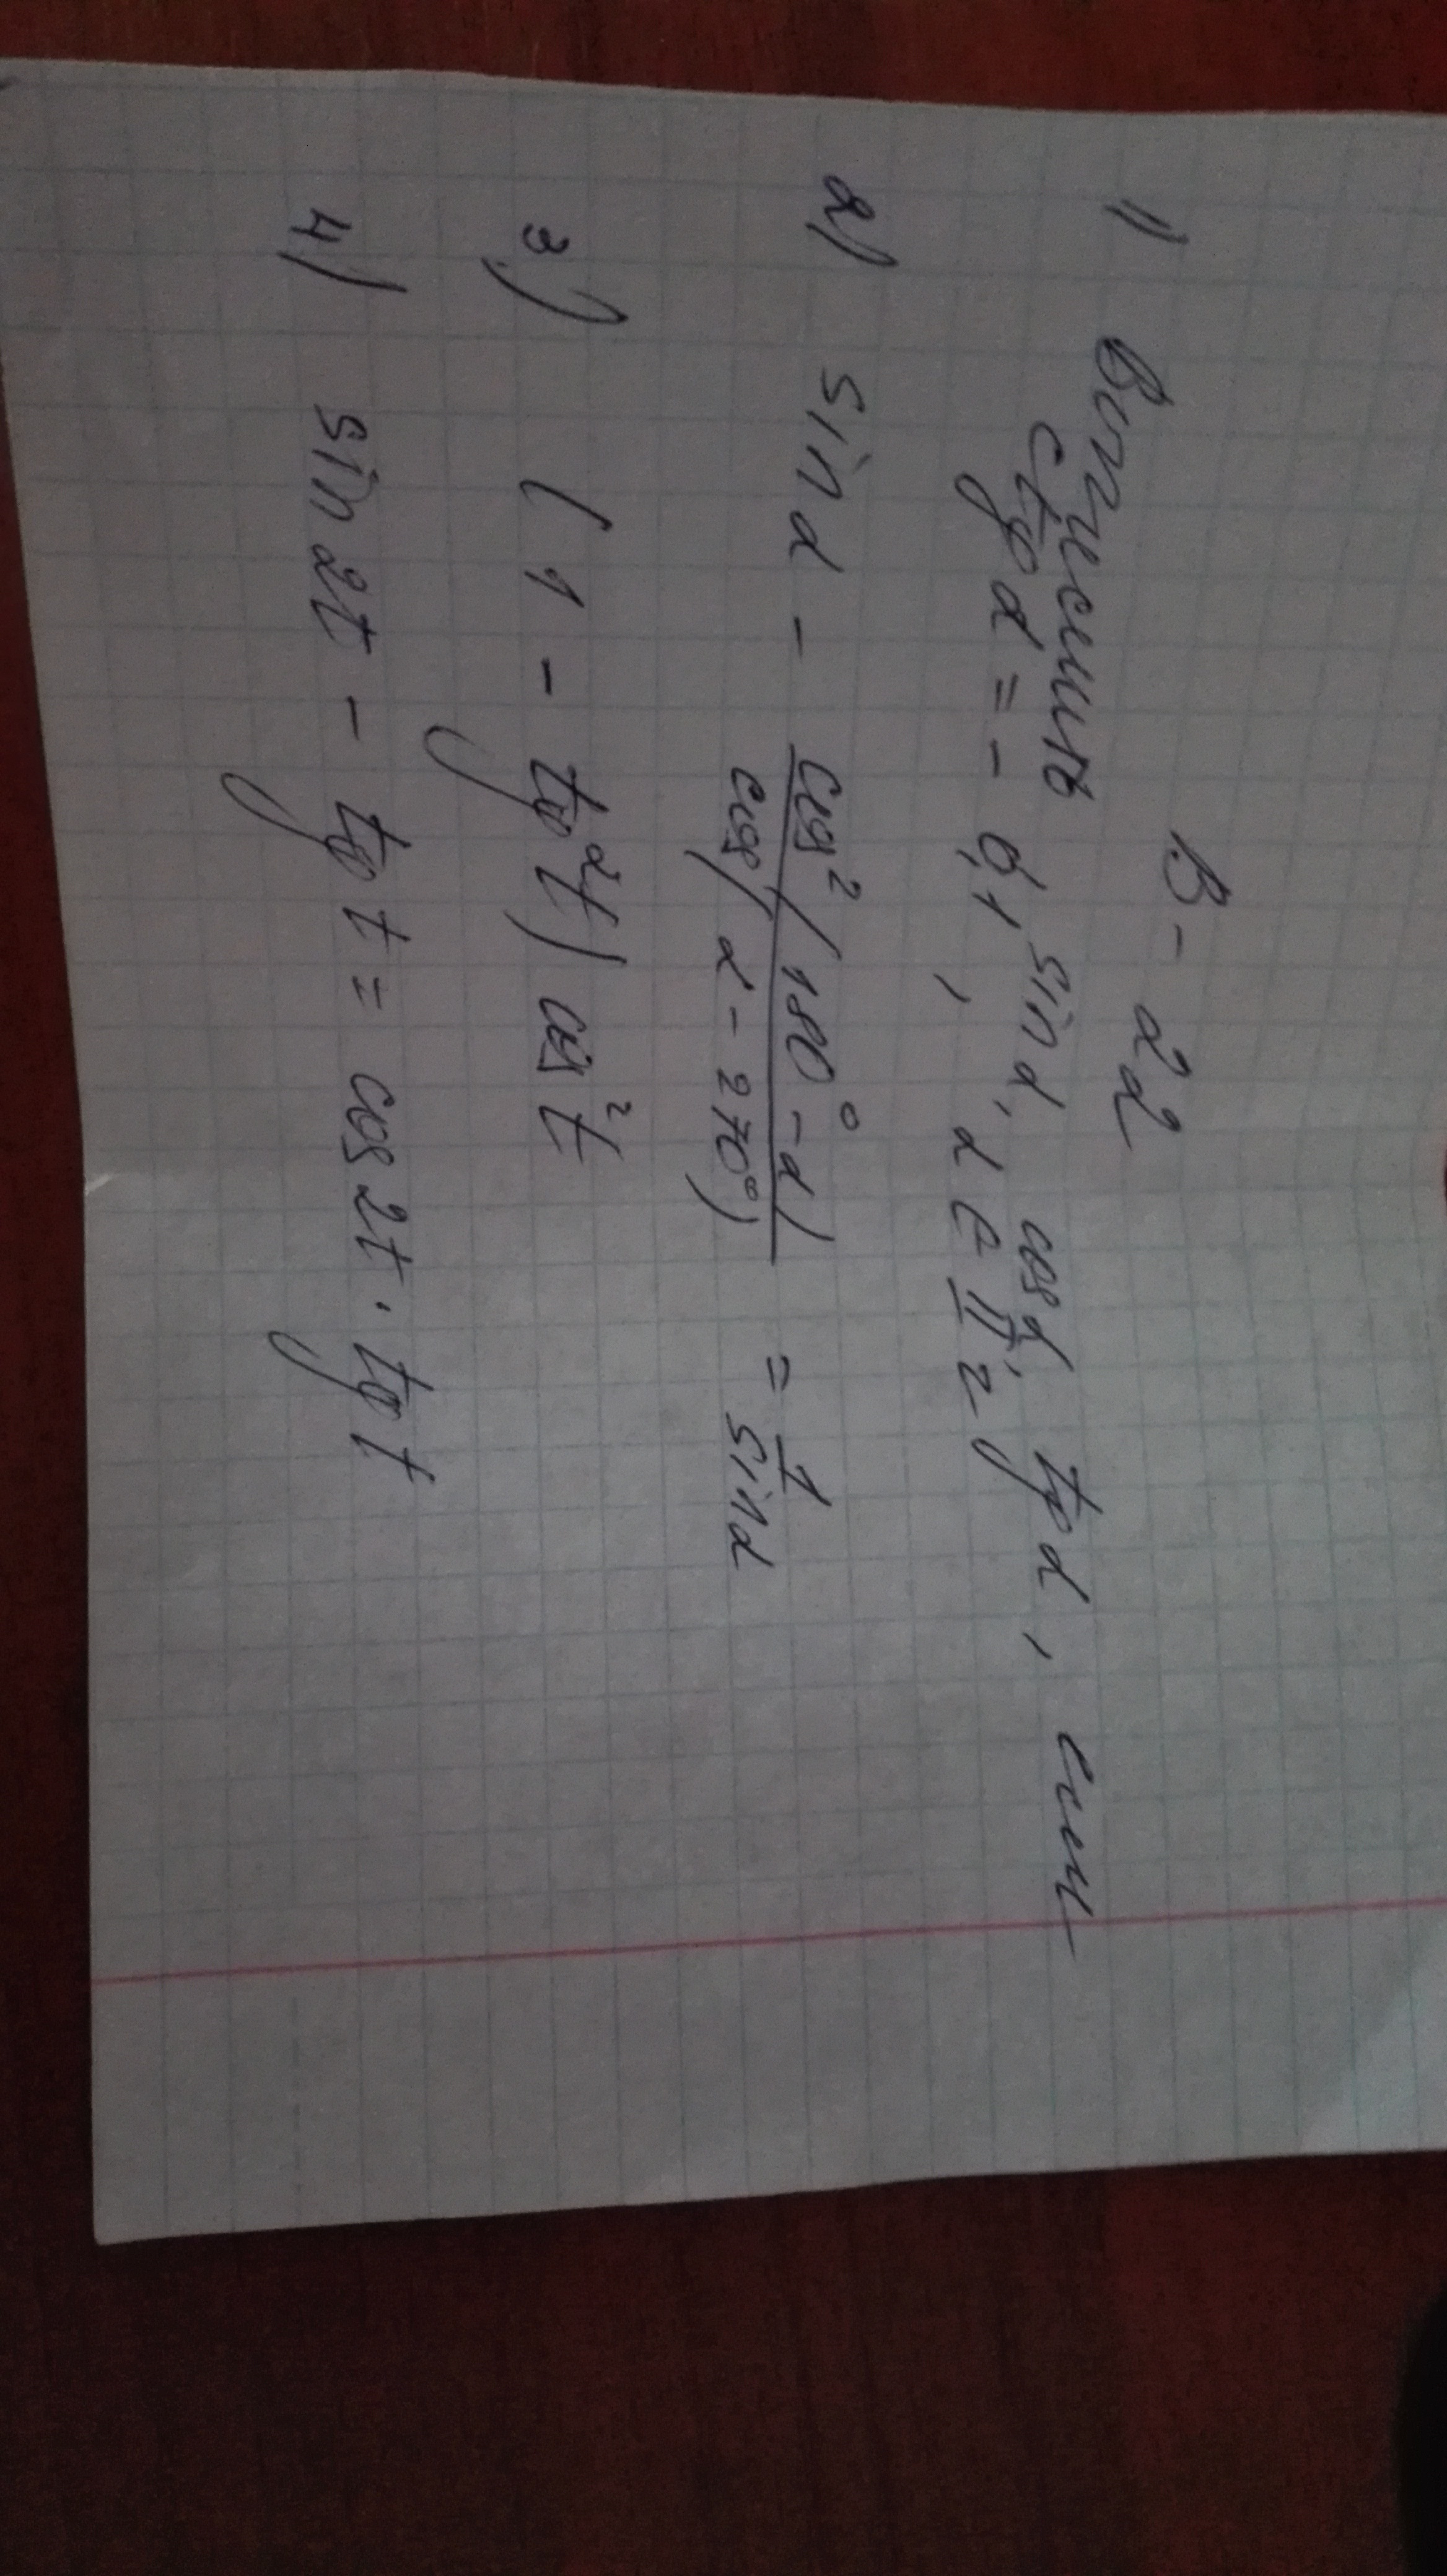 В-22
1) Вычислить sin α, cos α, tg α, если
ctg α = - 0,1, α ∈ II ч
2) sin α - cos²(180° - α) / cos(α - 270°) = 1 / sin α
3) (1 - tg²t) cos²t
4) sin 2t - tg t = cos 2t · tg t